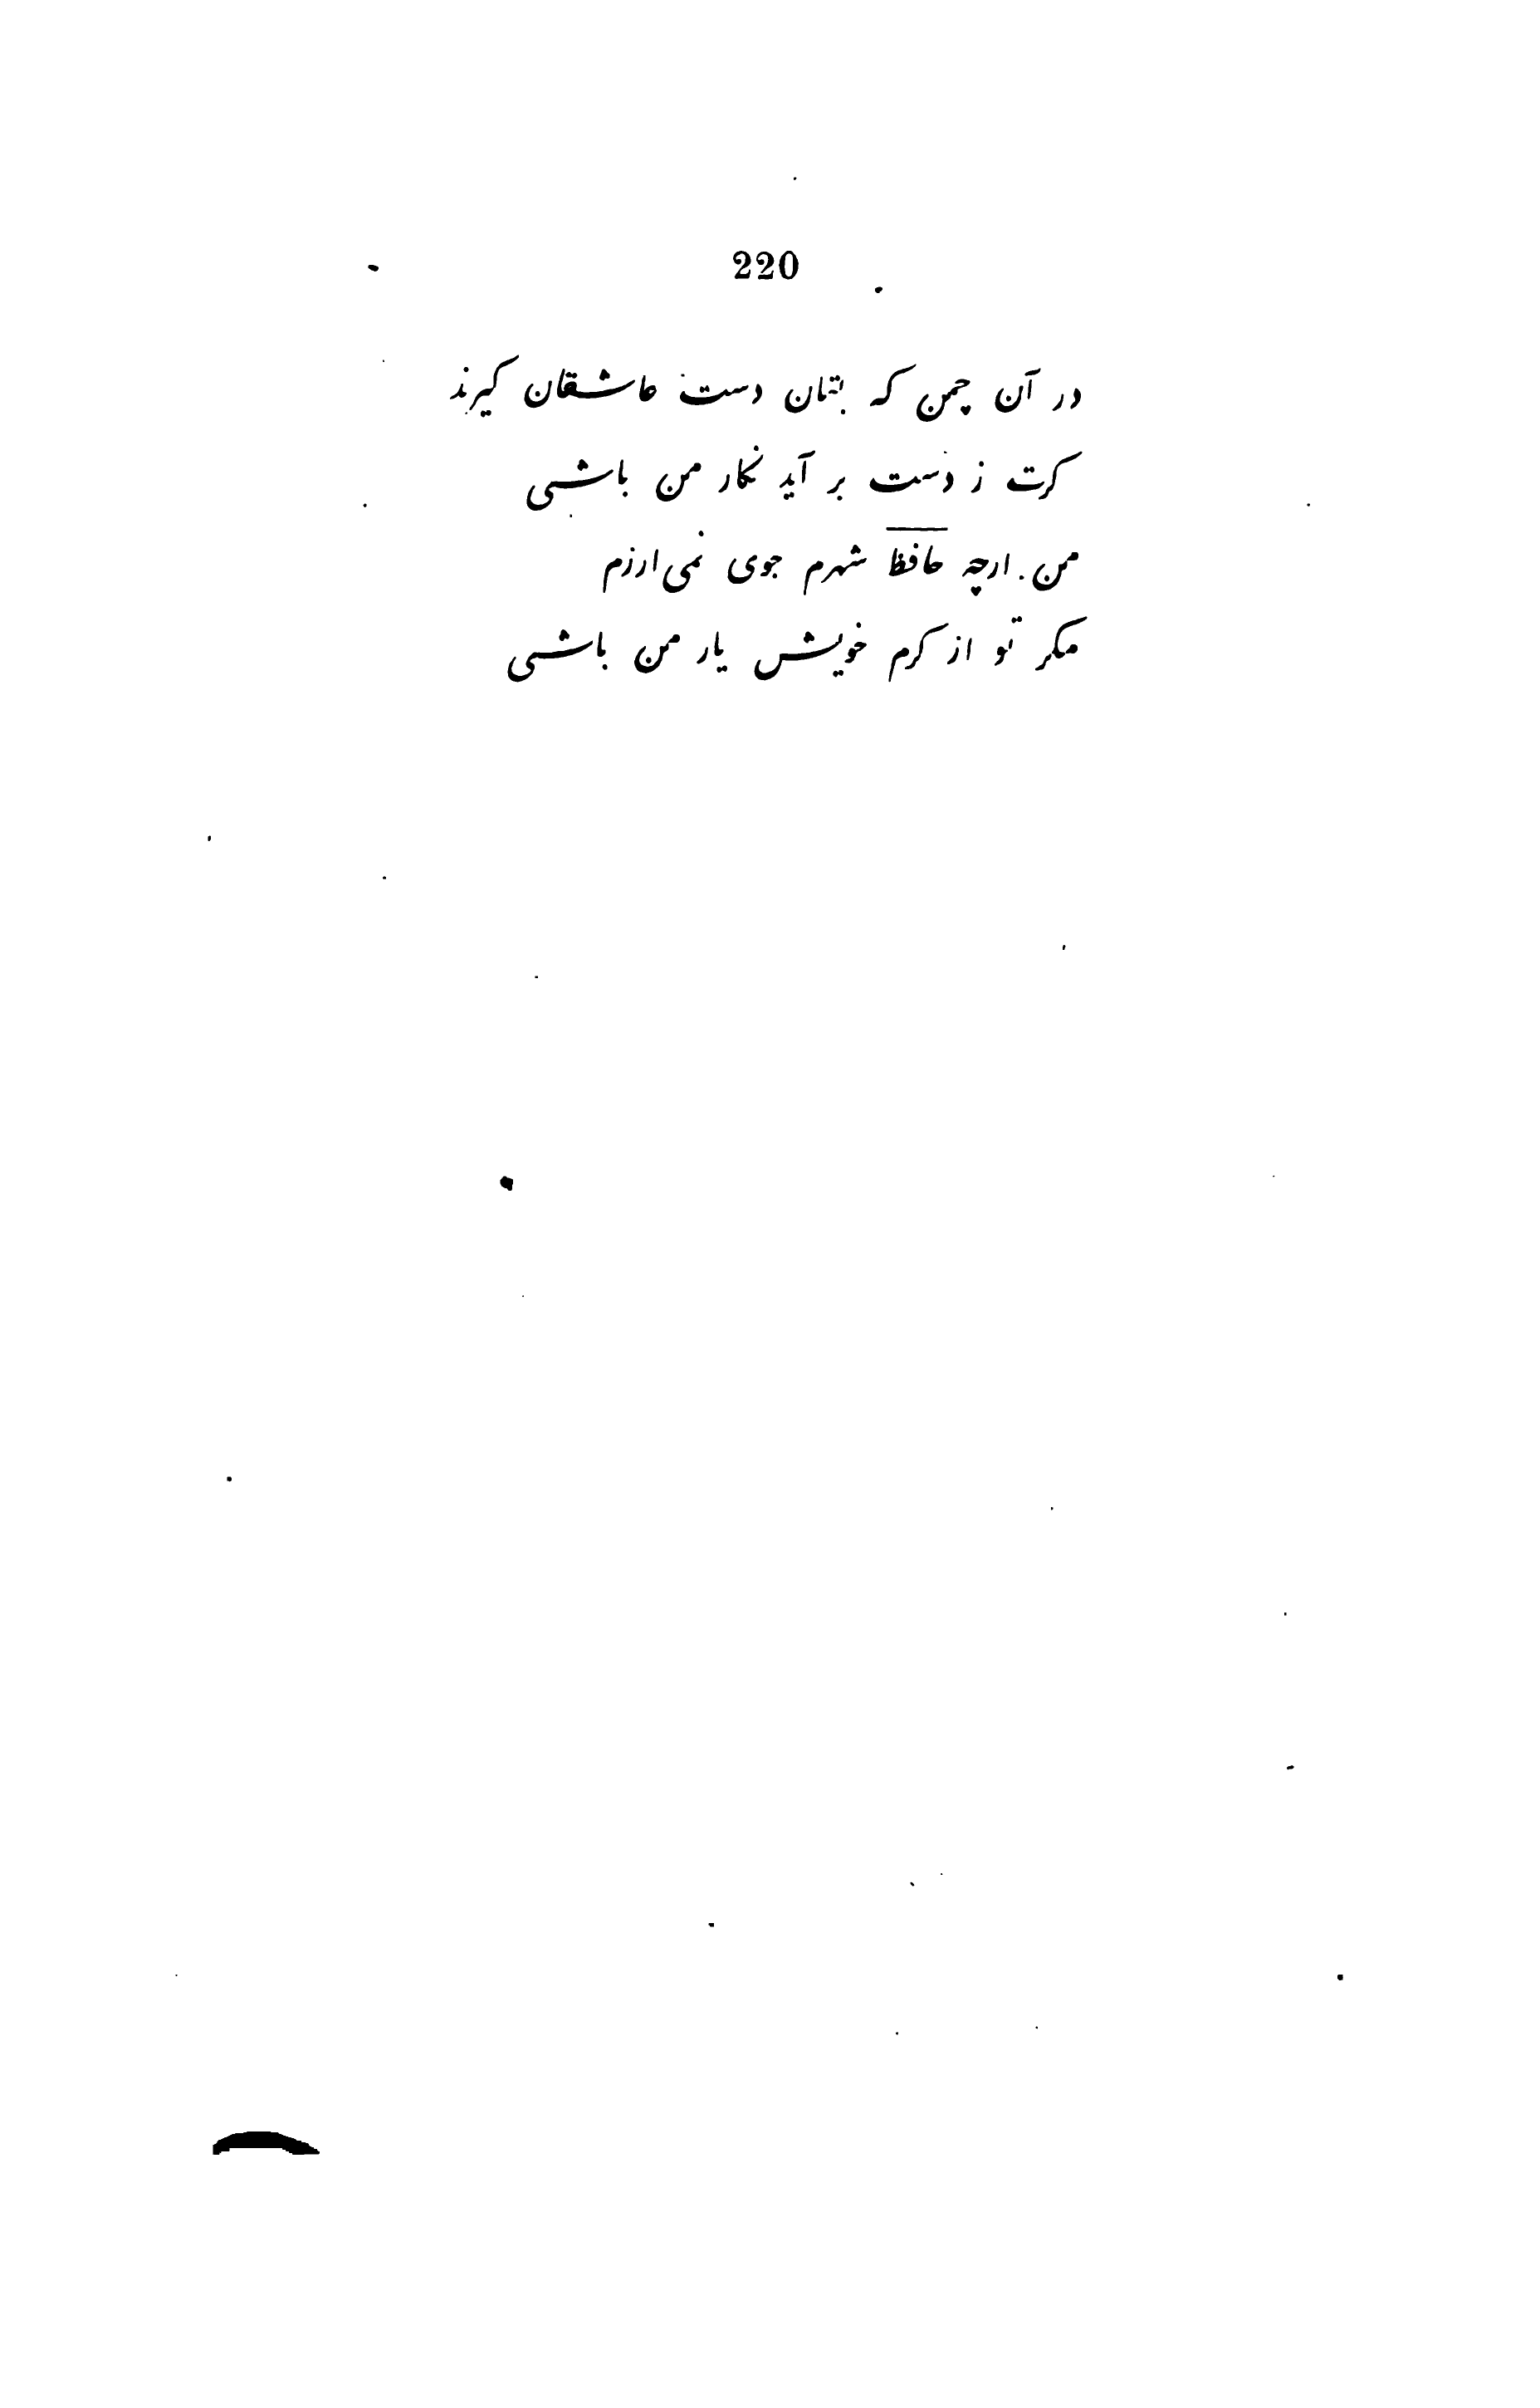 220
در آن چمن که بتان دست عاشقان کیرند
کرت ز دست بر آید نکار من باشی
من ارچه حافظ شهرم جوی نمی ارزم
مکر تو از کرم خویش یار من باشی